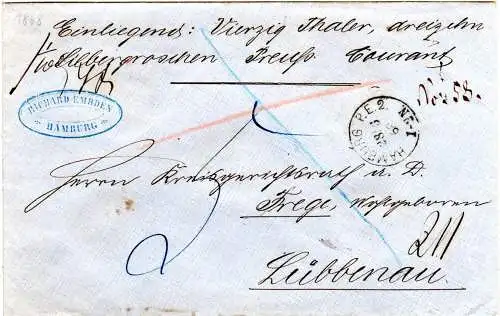 1868
Einliegend: Vierzig Thaler, dreizehn
Silbergroschen Preuß. Courant
RICHARD EMBDEN
HAMBURG
No 53.
HAMBURG P.E.2. N2-1
Herrn Kreisgerichtsrath a. D.
Frege, Wohlgeboren
211
Lübbenau.